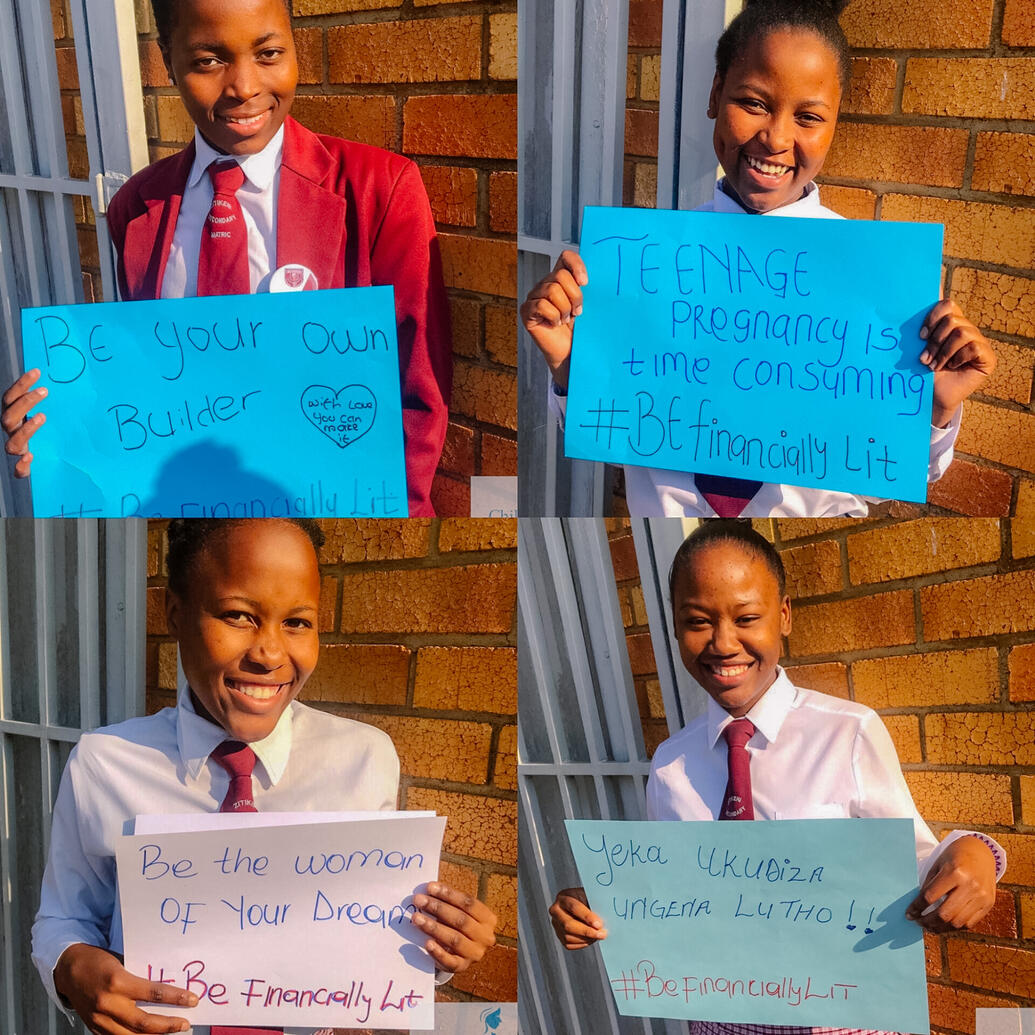 ITIKENI
ECONDARY
MATRIC
BE your own
Builder
with Love
You can
make
it
# Be Financially Lit
Chil
TEENAGE
PREgnancy is
time consuming
#BEfinancially Lit
ZITIKE
Be the woman
OF Your Dream
# Be Financially Lit
ONDARY
Yeka UKUDIZA
UNGENA LUTHO !!
#BeFinanciallyLIT